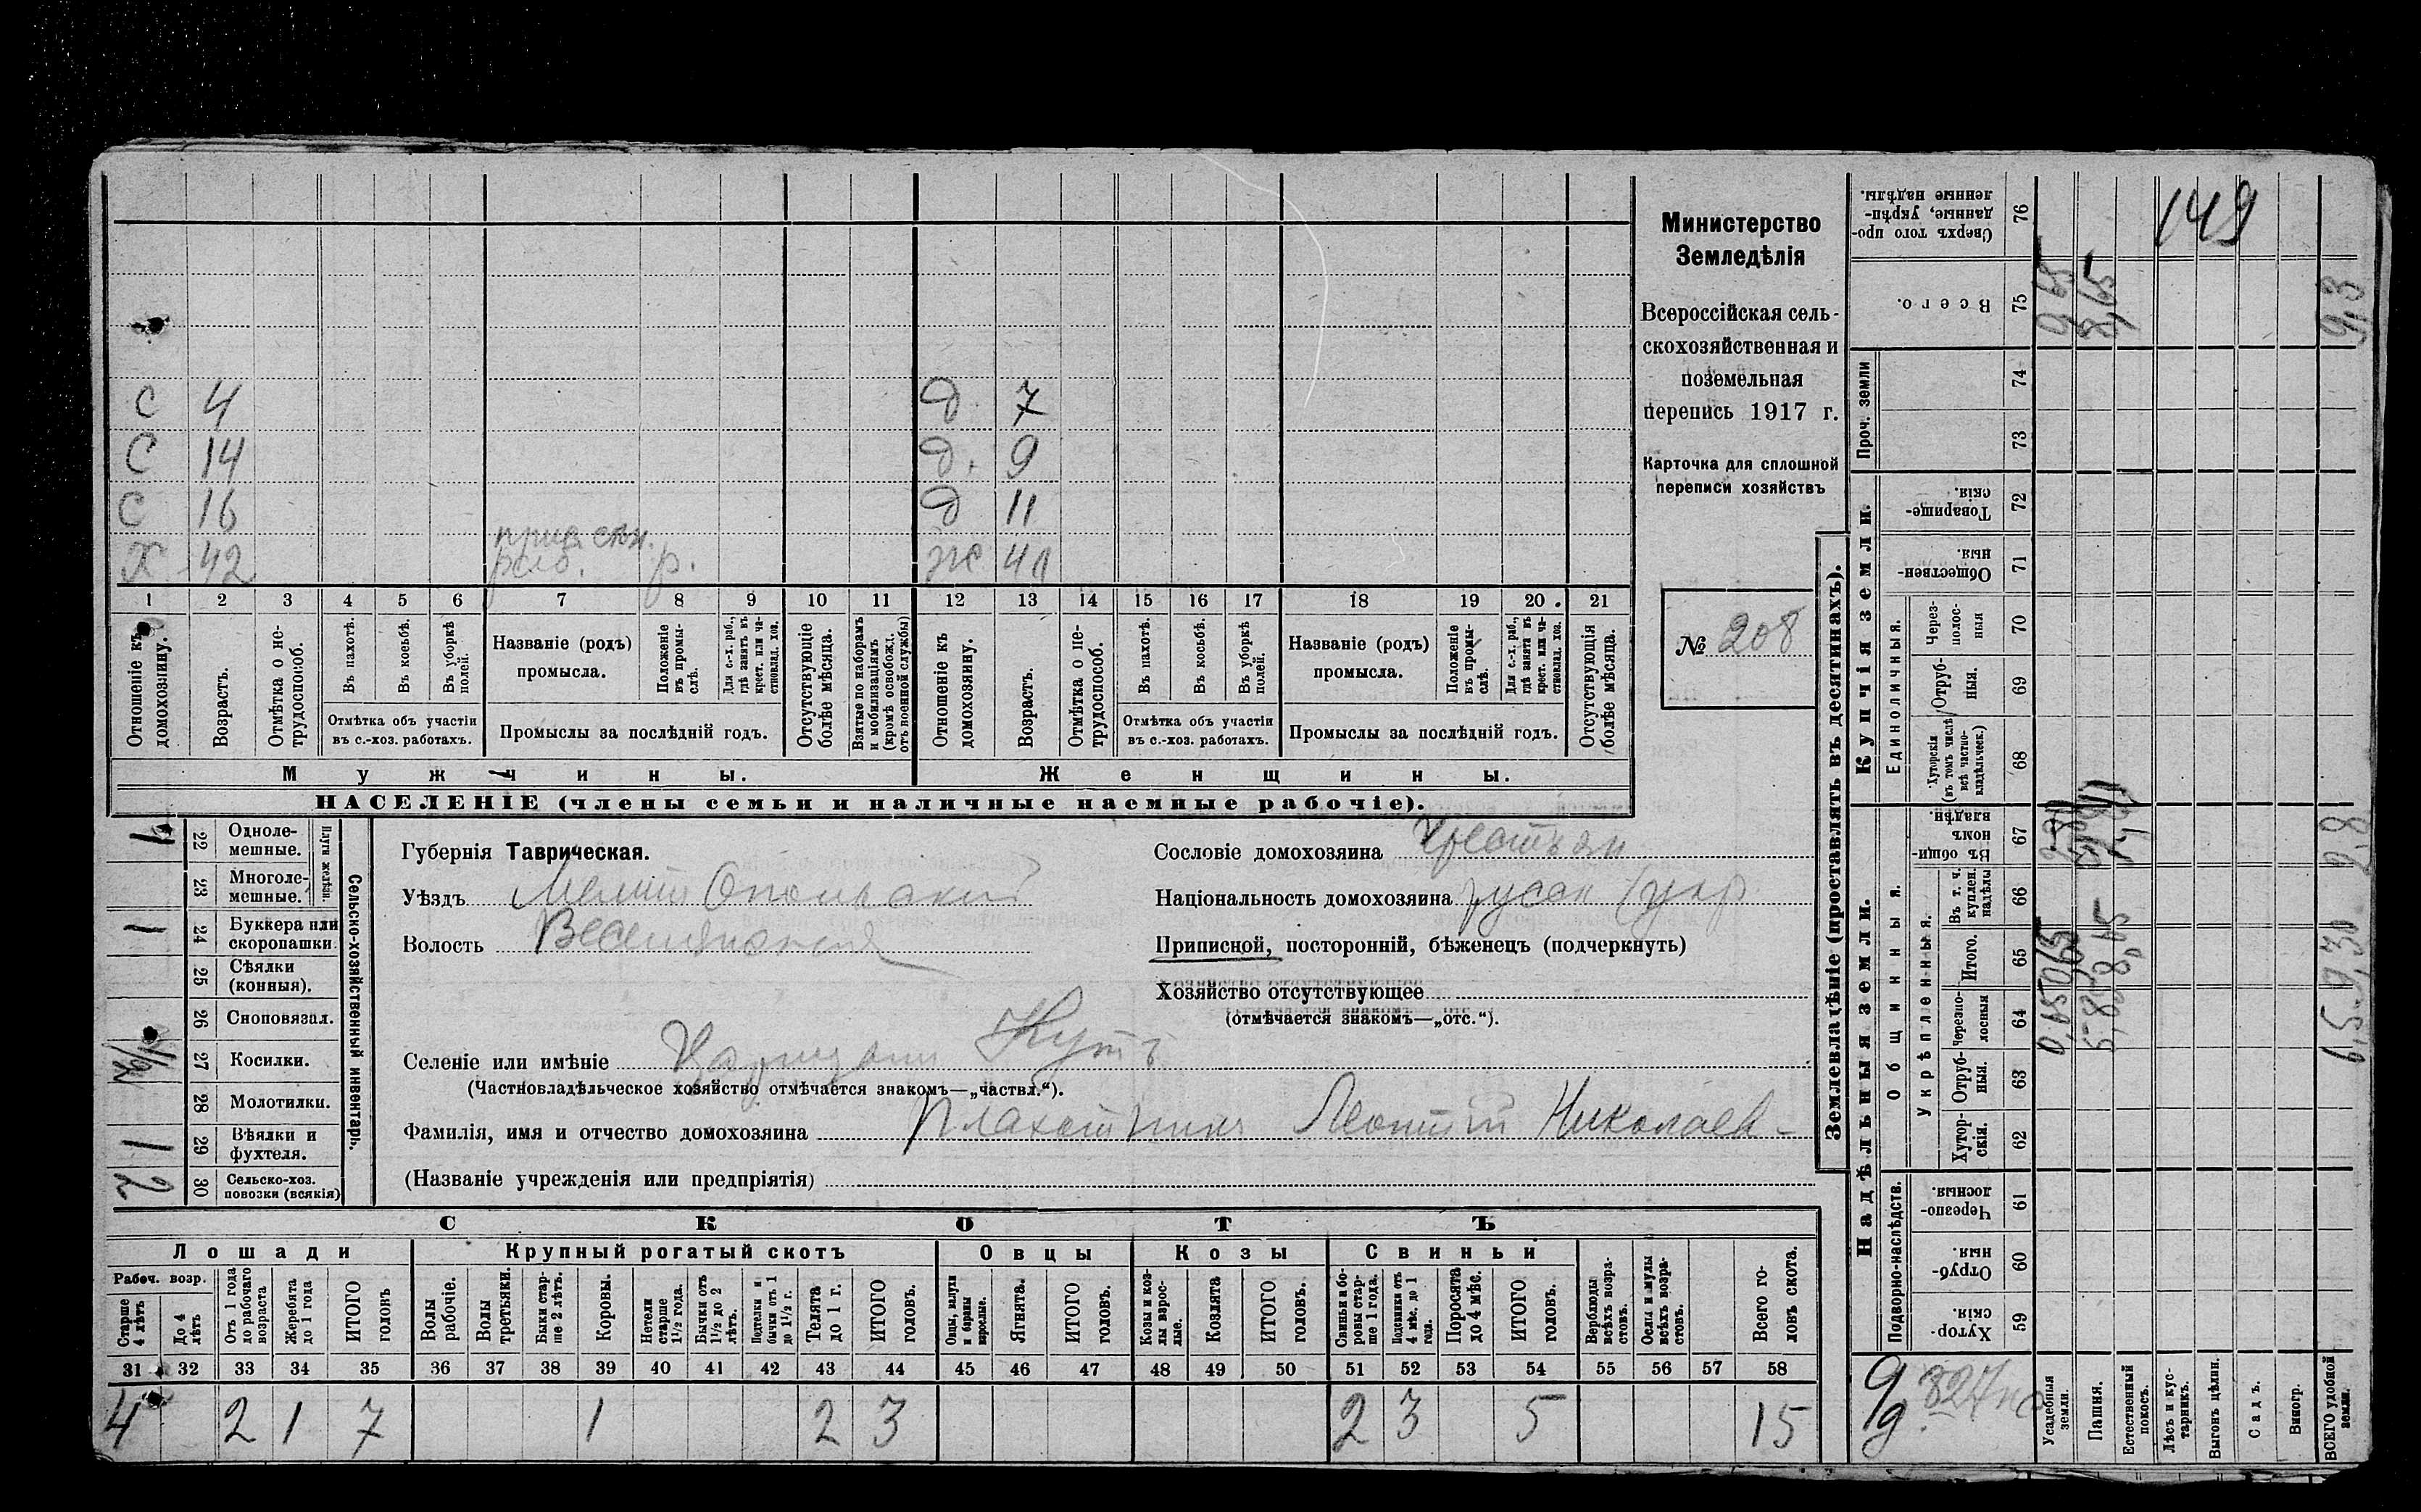 С 4 д. 7
С 14 д. 9
С 16 д 11
Х 42 р. ж 41
1 2 3 4 5 6 7 8 9 10 11 12 13 14 15 16 17 18 19 20 21
Отношеніе къ домохозяину.
Возрастъ.
Отмѣтка о нетрудоспособ.
Въ пахотѣ.
Въ косьбѣ.
Въ уборкѣ полей.
Отмѣтка объ участіи
въ с.-хоз. работахъ.
Названіе (родъ)
промысла.
Положеніе въ промыслѣ.
Для с.-х. раб., гдѣ занятъ въ крест. или частновлад. хоз.
Промыслы за послѣдній годъ.
Отсутствующіе болѣе мѣсяца.
Взятые по наборамъ и мобилизаціямъ (кромѣ освобожд. отъ военной службы)
Отношеніе къ домохозяину.
Возрастъ.
Отмѣтка о нетрудоспособ.
Въ пахотѣ.
Въ косьбѣ.
Въ уборкѣ полей.
Отмѣтка объ участіи
въ с.-хоз. работахъ.
Названіе (родъ)
промысла.
Положеніе въ промыслѣ.
Для с.-х. раб., гдѣ занята въ крест. или частновлад. хоз.
Промыслы за послѣдній годъ.
Отсутствующія болѣе мѣсяца.
Мужчины.
Женщины.
НАСЕЛЕНІЕ (члены семьи и наличные наемные рабочіе).
Министерство
Земледѣлія
Всероссійская сель-
скохозяйственная и
поземельная
перепись 1917 г.
Карточка для сплошной
переписи хозяйствъ
№ 208
Губернія Таврическая.
Уѣздъ Мелитопольскій
Волость Веселянская
Сословіе домохозяина Крестьян
Національность домохозяина русск (укр.
Приписной, посторонній, бѣженецъ (подчеркнуть)
Хозяйство отсутствующее
(отмѣчается знакомъ—„отс.“).
Селеніе или имѣніе Царицынъ Кутъ
(Частновладѣльческое хозяйство отмѣчается знакомъ—„частвл.“).
Фамилія, имя и отчество домохозяина Плахотникъ Леонтій Николаев-
(Названіе учрежденія или предпріятія)
Сельско-хозяйственный инвентарь.
Плуги желѣзн.
22 Однолемешные. 1
23 Многолемешные.
24 Буккера или скоропашки 1
25 Сѣялки (конныя).
26 Сноповязал.
27 Косилки.
28 Молотилки.
29 Вѣялки и фухтеля. 1
30 Сельско-хоз. повозки (всякія) 2
СКОТЪ
Лошади
Крупный рогатый скотъ
Овцы
Козы
Свиньи
Рабоч. возр.
Старше 4 лѣтъ
До 4 лѣтъ
Отъ 1 года до рабочаго возраста
Жеребята до 1 года
ИТОГО головъ
Волы рабочіе.
Волы третьяки.
Быки старше 2 лѣтъ.
Коровы.
Нетели старше 1½ года.
Бычки отъ 1½ до 2 лѣтъ.
Подтелки и бычки отъ 1 до 1½ г.
Телята до 1 г.
ИТОГО головъ.
Овцы, валухи и бараны взрослые.
Ягнята.
ИТОГО головъ.
Козы и козлы взрослые.
Козлята
ИТОГО головъ.
Свиньи и боровы старше 1 года.
Подсвинки отъ 4 мѣс. до 1 года.
Поросята до 4 мѣс.
ИТОГО головъ.
Верблюды всѣхъ возрастовъ.
Ослы и мулы всѣхъ возрастовъ.
Всего головъ скота.
31 32 33 34 35 36 37 38 39 40 41 42 43 44 45 46 47 48 49 50 51 52 53 54 55 56 57 58
4 2 1 7 1 2 3 2 3 5 15
Землевладѣніе (проставлять въ десятинахъ).
Надѣльныя земли.
Купчія земли.
Проч. земли
Подворно-наслѣдств.
Общинныя.
Укрѣпленныя.
Единоличныя.
59 Хуторскія.
60 Отрубныя.
61 Черезполосныя.
62 Хуторскія.
63 Отрубныя.
64 Черезполосныя
65 Итого.
66 Въ т. ч. куплен. надѣлы
67 Въ общинномъ владѣн.
68 Хуторскія (въ томъ числѣ всѣ частновладѣльческ.)
69 Отрубныя.
70 Черезполосныя
71 Общественныя
72 Товарищескія.
73
74
75 Всего.
76 Сверхъ того проданные, укрѣпленные надѣлы.
149
Усадебныя земли.
Пашня.
8,65
Естественный покосъ.
Лѣсъ и кустарникъ.
Выгонъ цѣлин.
Садъ.
Виногр.
ВСЕГО удобной земли.
2,8 9,3